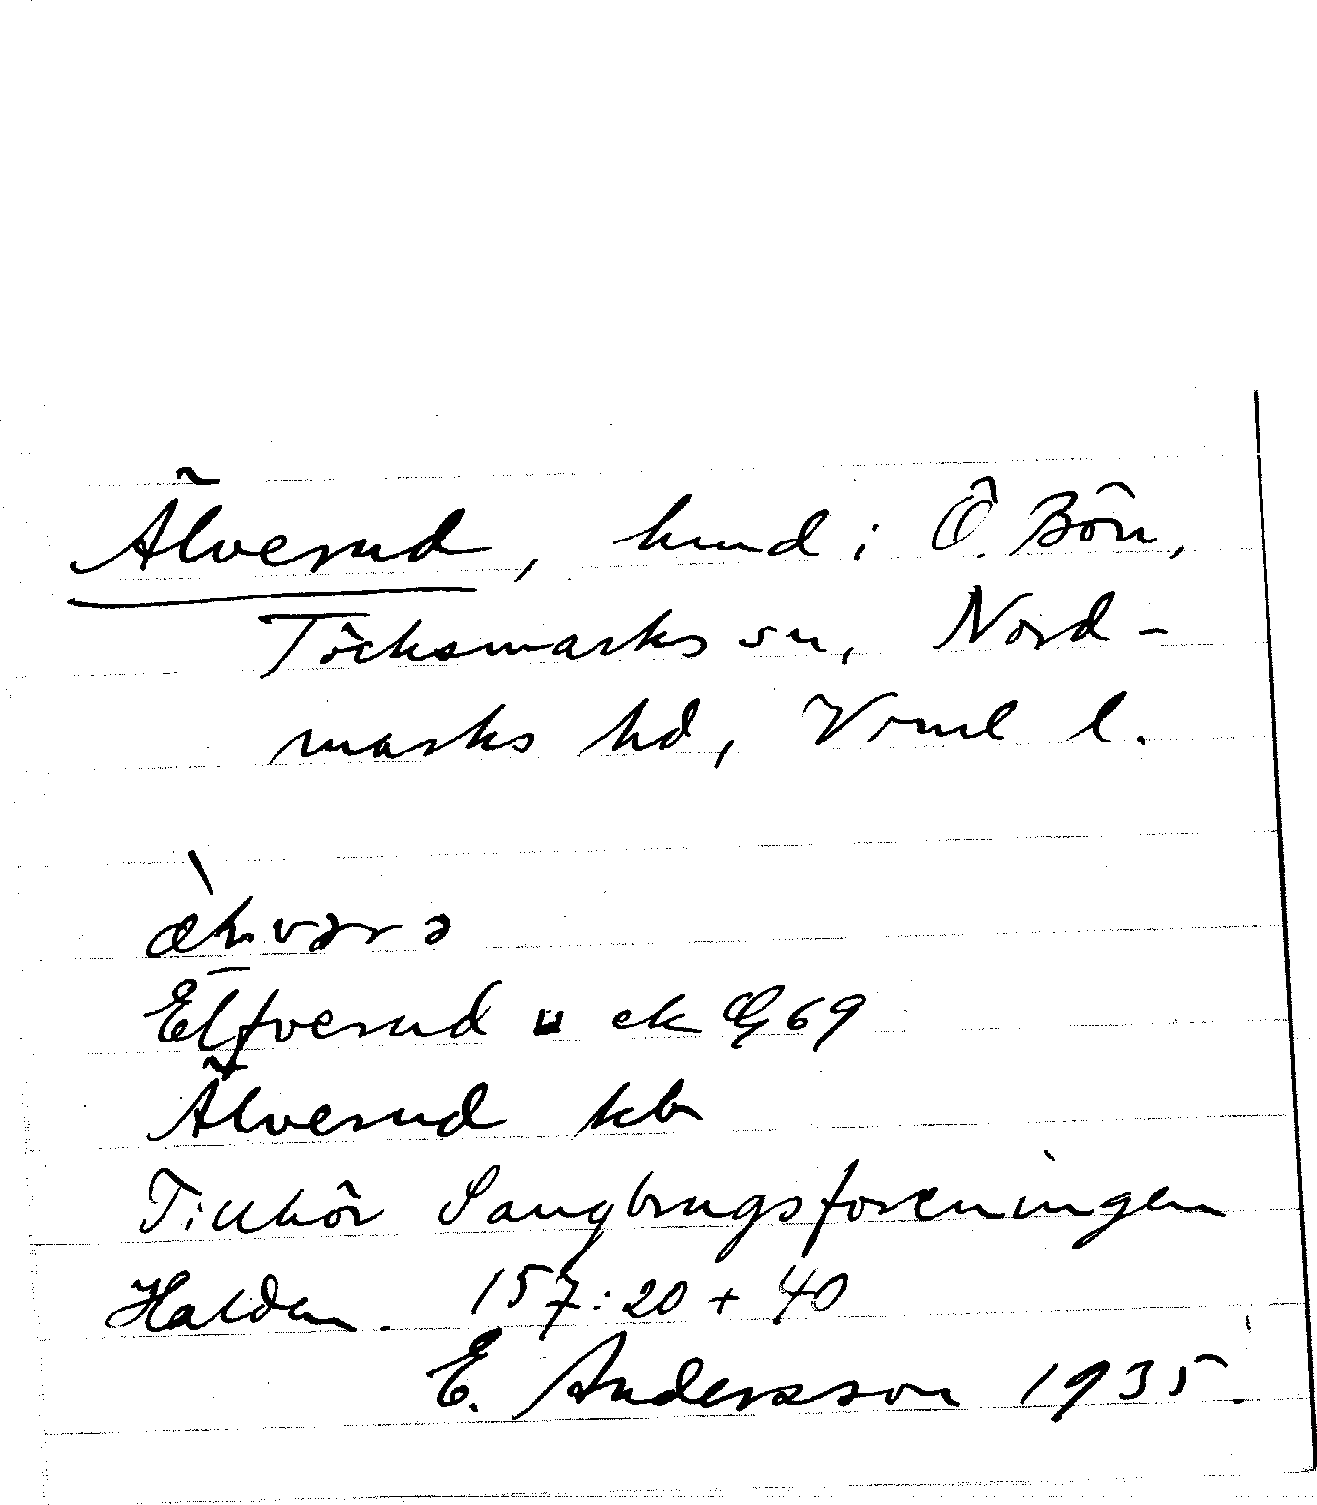 Älverud, hmd i Ö. Bön,
Töcksmarks sn, Nord-
marks hd, Vrml l.
Elfverud ek G 69
Älverud kb
Tillhör Saugbrugsforeningen
Halden. 157:20 + 40
E. Andersson 1935.